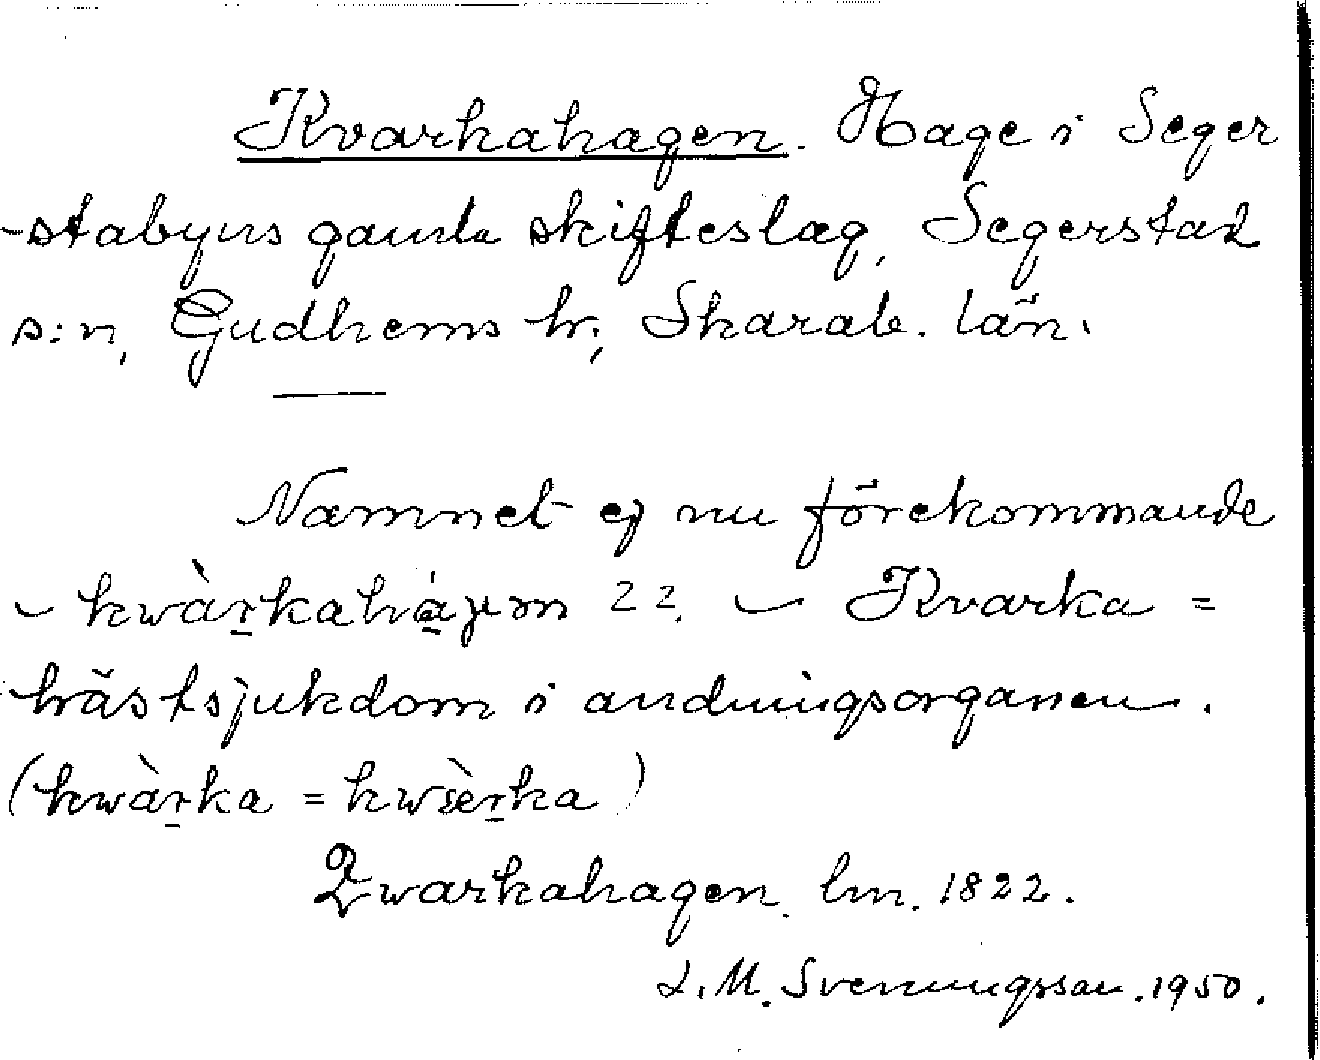 Kvarkahagen. Hage i Seger
-stabyns gamla skifteslag, Segerstad
s:n, Gudhems hr, Skarab. län.
Namnet ej nu förekommande
– kwàrkahágen 22. – Kvarka =
hästsjukdom i andningsorganen.
(kwàrka = kwærka)
Qwarkahagen. lm. 1822.
L. M. Svenungsson. 1950.